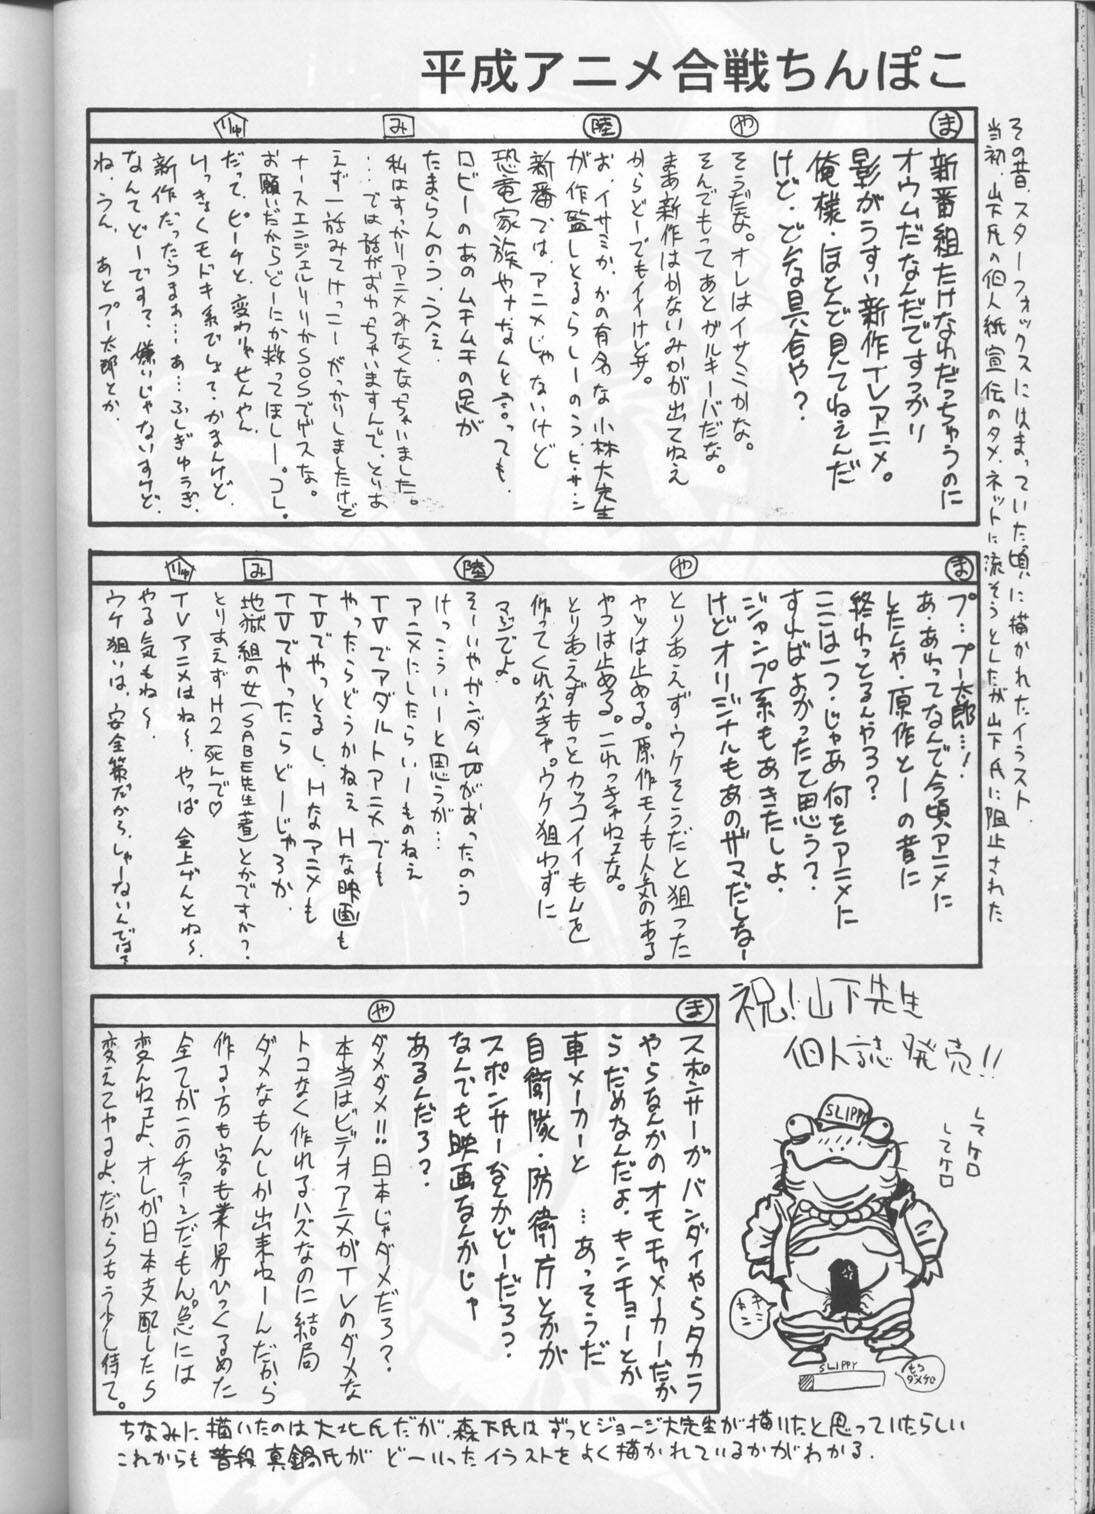 平成アニメ合戦ちんぽこ
その昔、スターフォックスにはまっていた頃に描かれたイラスト。
当初、山下氏の個人紙宣伝のタメ、ネットに流そうとしたが山下氏に阻止された
ま
新番組たけなわだっちゅうのに
オウムだなんだですっかり
影がうすい新作TVアニメ。
俺様・ほとんど見てねえんだ
けど・どんな具合や?
や
そうだな。オレはイサミかな。
そんでもってあとガルキーバだな。
まあ新作はかないみかが出てねえ
からどーでもイイけどサ。
陸
お、イサミか、かの有名な小林大先生
が作監しとるらしーのう、ヒ・サ・シ
新番では、アニメじゃないけど
恐竜家族やナなんと言っても、
ロビーのあのムチムチの足が
たまらんのう、ううへえ
み
私はすっかりアニメみなくなっちゃいました。
…では話がおわっちゃいますんで、とりあ
えず一話みてけっこーがっかりしましたけど
ナースエンジェルりりかSOSでゲスな。
お願いだからどーにか救ってほしー。コレ。
りゅ
だって、ピーチと、変わりゃせんやん
りっきょくモドキ系でしょて、かまんけど
新作だったらまぁ…あ…ふしぎゅうぎ、
なんてどーですて、嫌いじゃないすけど、
ね、うん、あとプー太郎とか、
ま
プ…プー太郎…!
あ、あれってなんで今頃アニメに
したんや・原作とーの昔に
終わっとるんやろ?
ここは一つ・じゃあ何をアニメに
すればよかったて思う?
ジャンプ系もあきたしよ、
けどオリジナルもあのザマだしなー
や
とりあえずウケそうだと狙った
ヤツは止める。原作モノも人気のある
やつは止める。これっきゃねェな。
とりあえずもっとカッコイイもんを
作ってくれなきゃ。ウケ狙わずに
マジでよ。
陸
そーいやガンダムWがあったのう
けっこういーと思うが…
アニメにしたらいーものねえ
TVでアダルトアニメでも
やったらどうかねえHな映画も
TVでやっとるし、Hなアニメも
TVでやったらどーじゃろか、
み
地獄組の女(SABE先生著)とかですか?
とりあえずH2死んで♡
りゅ
TVアニメはね〜、やっぱ金上げんとね〜、
やる気もね〜
ウケ狙いは、安全策だから、しゃーないんでは?
ま
スポンサーがバンダイやらタカラ
やらなんかのオモチャメーカーだか
らだめなんだよ、キンチョーとか
車メーカーと…あっそうだ
自衛隊・防衛庁とかが
スポンサーなんかどーだろ?
なんでも映画なんかじゃ
あるんだろ?
や
ダメダメ!!日本じゃダメだろ?
本当はビデオアニメがTVのダメな
トコなく作れるハズなのに結局
ダメなもんしか出来ねーんだから
作る方も客も業界ひっくるめた
全てがこのチョーシだもん。急には
変んねェよ、オレが日本支配したら
変えてやるよ、だからもう少し待て。
祝!山下先生
個人誌発売!!
してケロ
してケロ
SLIPPY
キンキン
SLIPPY
もうダメケロ
ちなみに描いたのは大北氏だが、森下氏はずっとジョージ大先生が描いたと思っていたらしい
これからも普段真鍋氏がどーいったイラストをよく描かれているかがわかる。